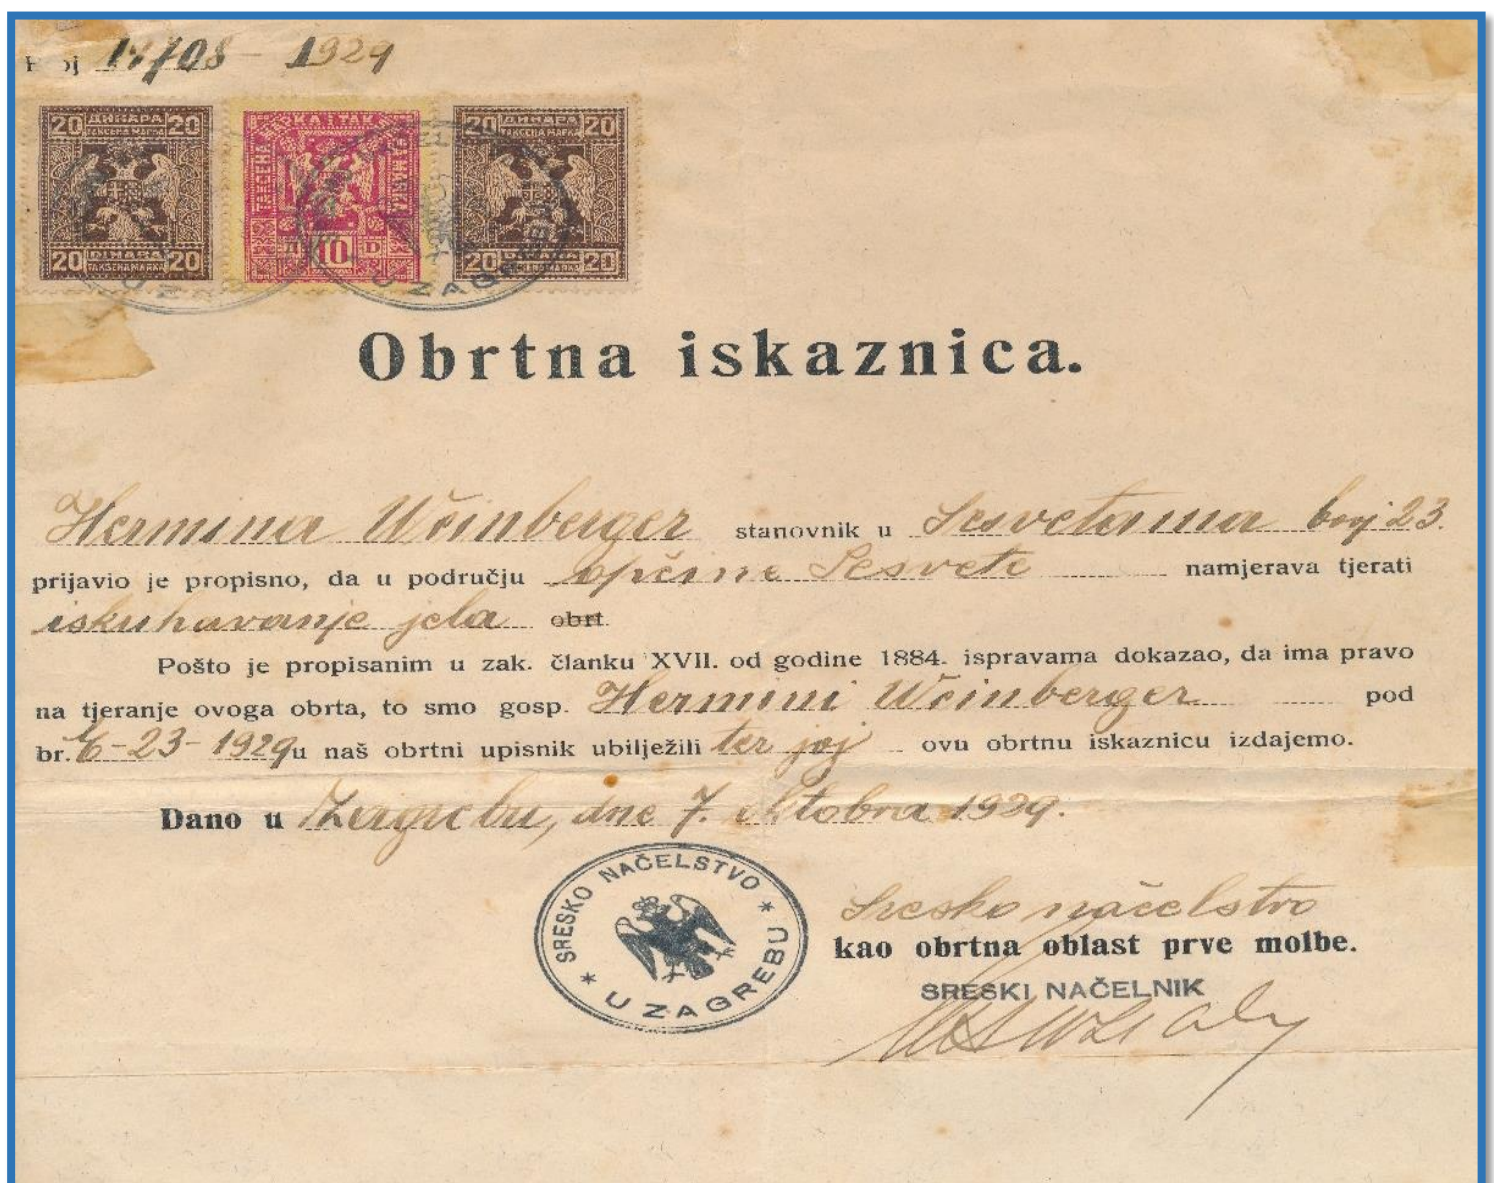 Broj 14708 - 1929
20 ДИНАРА 20
ТАКСЕНА МАРКА
20 DINARA 20
TAKSENA MARKA
ТАКСЕНА МАРКА TAKSENA MARKA
Д 10 D
20 ДИНАРА 20
ТАКСЕНА МАРКА
20 DINARA 20
TAKSENA MARKA
U ZAGREBU
U ZAGREBU
Obrtna iskaznica.
Hermina Weinberger stanovnik u Sesvetama broj 23.
prijavio je propisno, da u području općine Sesvete namjerava tjerati
iskuhavanje jela obrt
Pošto je propisanim u zak. članku XVII. od godine 1884. ispravama dokazao, da ima pravo
na tjeranje ovoga obrta, to smo gosp. Hermini Weinberger pod
br. 6-23-1929 u naš obrtni upisnik ubilježili ter joj ovu obrtnu iskaznicu izdajemo.
Dano u Zagrebu, dne 7. oktobra 1929.
SRESKO NAČELSTVO * U ZAGREBU *
Sresko načelstvo
kao obrtna oblast prve molbe.
SRESKI NAČELNIK